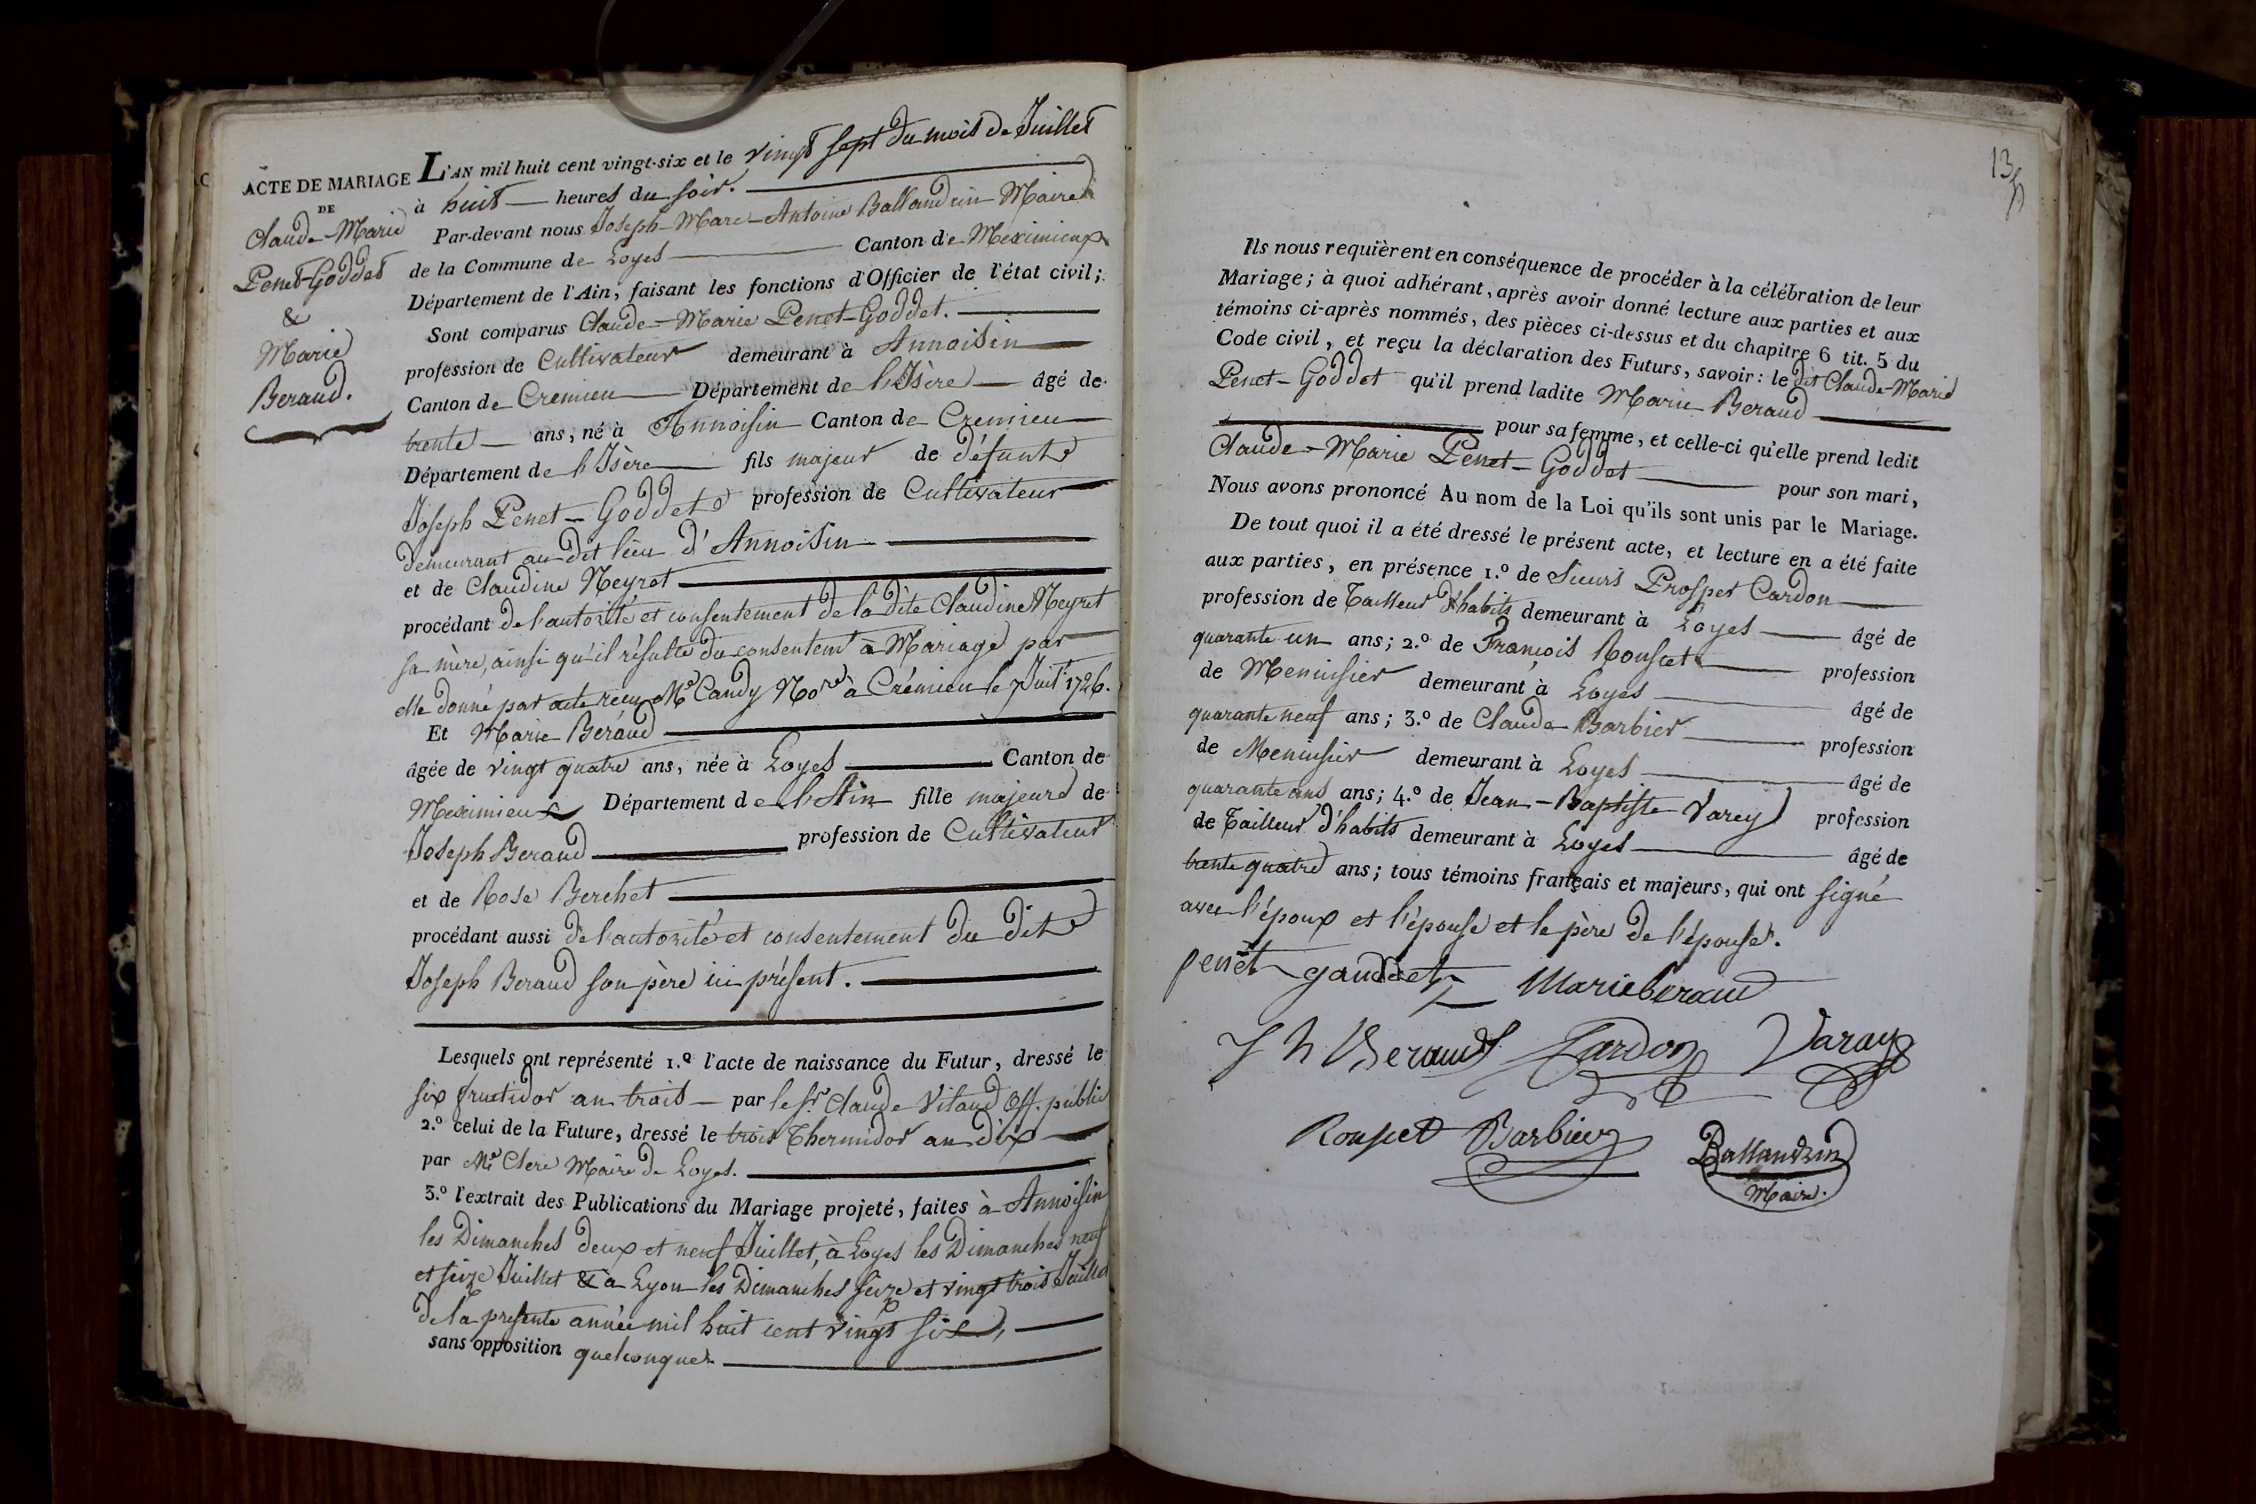 ACTE DE MARIAGE
DE
Claude-Marie
Penet-Goddet
&
Marie
Beraud.
L'AN mil huit cent vingt-six et le vingt sept du mois de Juillet
à huit heures du soir.
Par-devant nous Joseph-Marc-Antoine Ballandrin Maire
de la Commune de Loyes Canton de Meximieux
Département de l'Ain, faisant les fonctions d'Officier de l'état civil;
Sont comparus Claude-Marie Penet-Goddet.
profession de Cultivateur demeurant à Annoisin
Canton de Cremieu Département de l'Isère âgé de
trente ans, né à Annoisin Canton de Cremieu
Département de l'Isère fils majeur de défunt
Joseph Penet-Goddet profession de Cultivateur
demeurant au dit lieu d'Annoisin
et de Claudine Neyret
procédant de l'autorité et consentement de la dite Claudine Neyret
sa mère, ainsi qu'il résulte du consentemt à Mariage par
elle donné par acte recu Me Candy Nore à Crémieu le 7 Juilt 1726.
Et Marie Béraud
âgée de vingt quatre ans, née à Loyes Canton de
Meximieux Département de l'Ain fille majeure de
Joseph Beraud profession de Cultivateur
et de Rose Berchet
procédant aussi de l'autorité et consentement du dit
Joseph Beraud son père ici présent.
Lesquels ont représenté 1.º l'acte de naissance du Futur, dressé le
six fructidor an trois par le Sr. Claude Vitaud Off. public
2.º celui de la Future, dressé le trois Thermidor an dix
par Mr Clere Maire de Loyes.
3.º l'extrait des Publications du Mariage projeté, faites à Annoisin
les Dimanches deux et neuf Juillet, à Loyes les Dimanches neuf
et seize Juillet & à Lyon les Dimanches seize et vingt trois Juillet
de la presente année mil huit cent vingt six,
sans opposition quelconque
13
Ils nous requièrent en conséquence de procéder à la célébration de leur
Mariage; à quoi adhérant, après avoir donné lecture aux parties et aux
témoins ci-après nommés, des pièces ci-dessus et du chapitre 6 tit. 5 du
Code civil, et reçu la déclaration des Futurs, savoir: le dit Claude-Marie
Penet-Goddet qu'il prend ladite Marie Beraud
pour sa femme, et celle-ci qu'elle prend ledit
Claude-Marie Penet-Goddet pour son mari,
Nous avons prononcé Au nom de la Loi qu'ils sont unis par le Mariage.
De tout quoi il a été dressé le présent acte, et lecture en a été faite
aux parties, en présence 1.º de Sieurs Prosper Cardon
profession de Tailleur d'habits demeurant à Loyes âgé de
quarante un ans; 2.º de François Rousset profession
de Menuisier demeurant à Loyes âgé de
quarante neuf ans; 3.º de Claude Barbier profession
de Menuisier demeurant à Loyes âgé de
quarante ans ans; 4.º de Jean-Baptiste Varey profession
de Tailleur d'habits demeurant à Loyes âgé de
trente quatre ans; tous témoins français et majeurs, qui ont signé
avec l'époux et l'épouse et le père de l'épouse.
penet gauddet Marie beraud
J h Beraud Cardon Varay
Rouset Barbier Ballandrin
Maire.